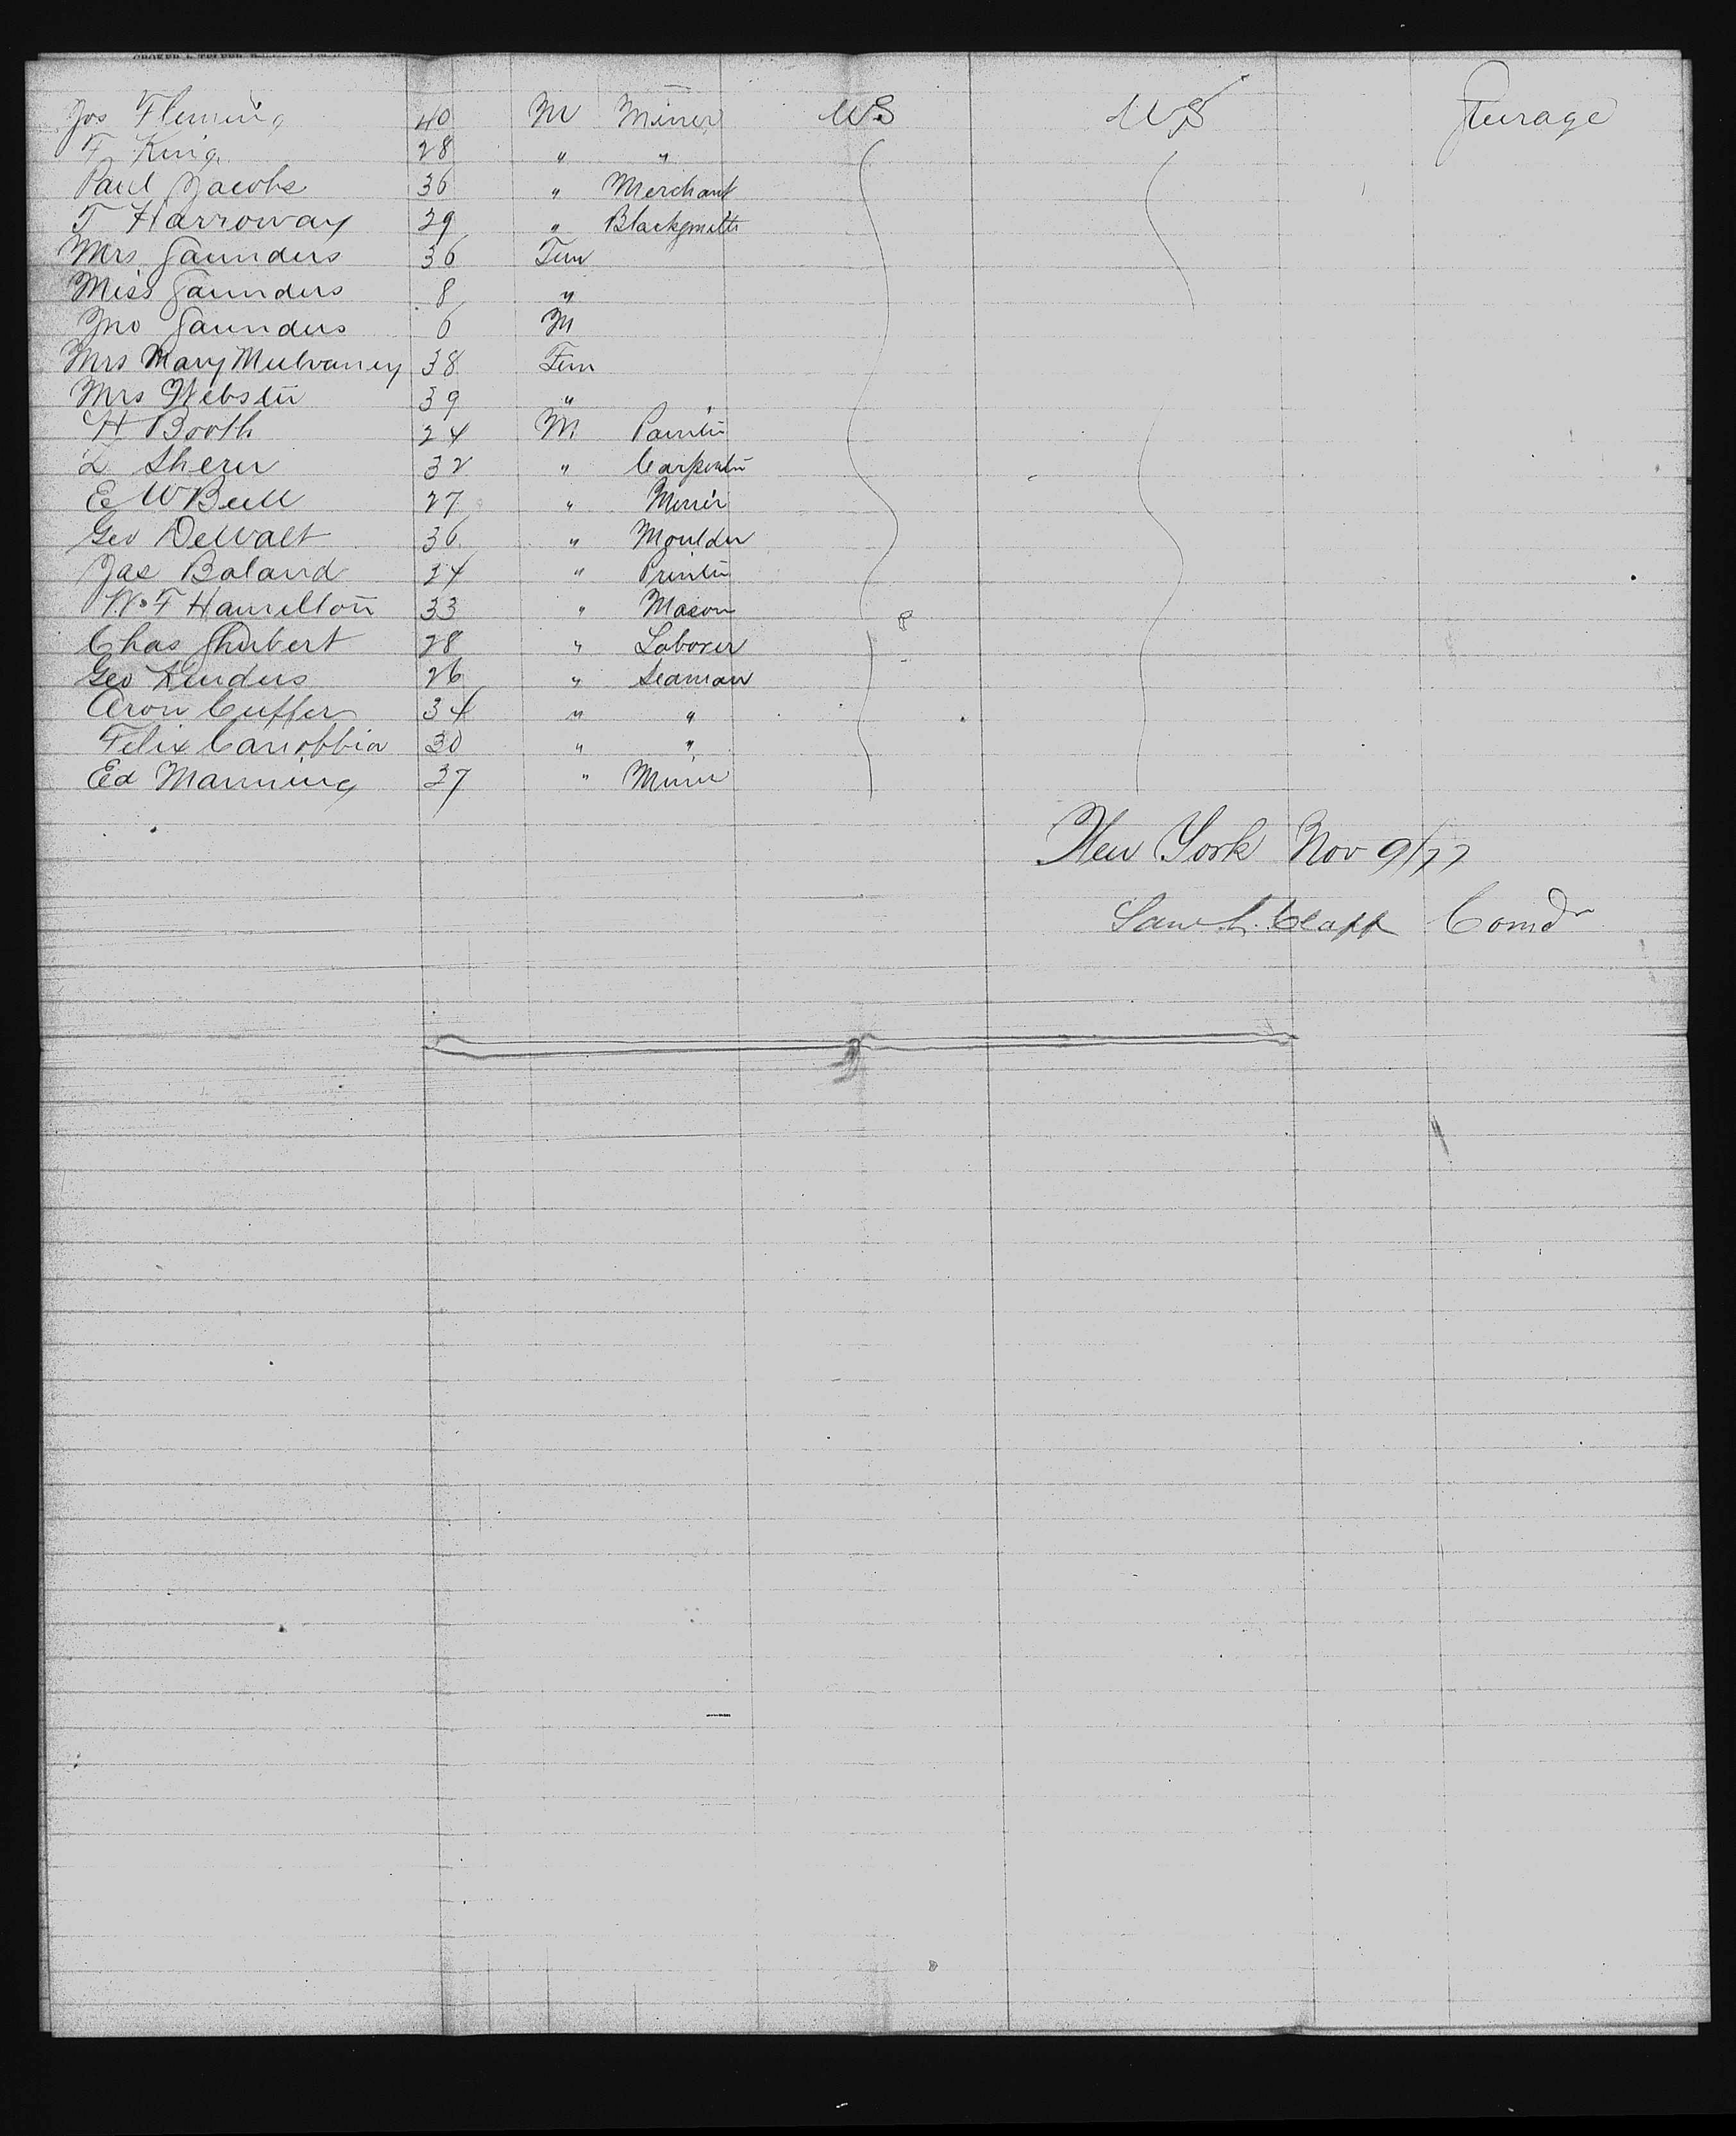 Jos Fleming 40 M Miner US US Steerage
F King 28 " "
Paul Jacobs 36 " Merchant
T Harroway 29 " Blacksmith
Mrs Saunders 36 Fem
Miss Saunders 8 "
Jno Saunders 6 M
Mrs Mary Mulvaney 38 Fem
Mrs Webster 39 "
H Booth 24 M Painter
L Sherer 32 " Carpenter
E W Bull 27 " Miner
Geo DeWalt 36 " Moulder
Jas Boland 24 " Printer
W F Hamilton 33 " Mason
Chas Shubert 28 " Laborer
Geo 26 " Seaman
Aron Cuffer 34 " "
Felix Canobbia 30 " "
Ed Manning 37 " Miner
New York Nov 9/77
Saml L. Clapp Comdr